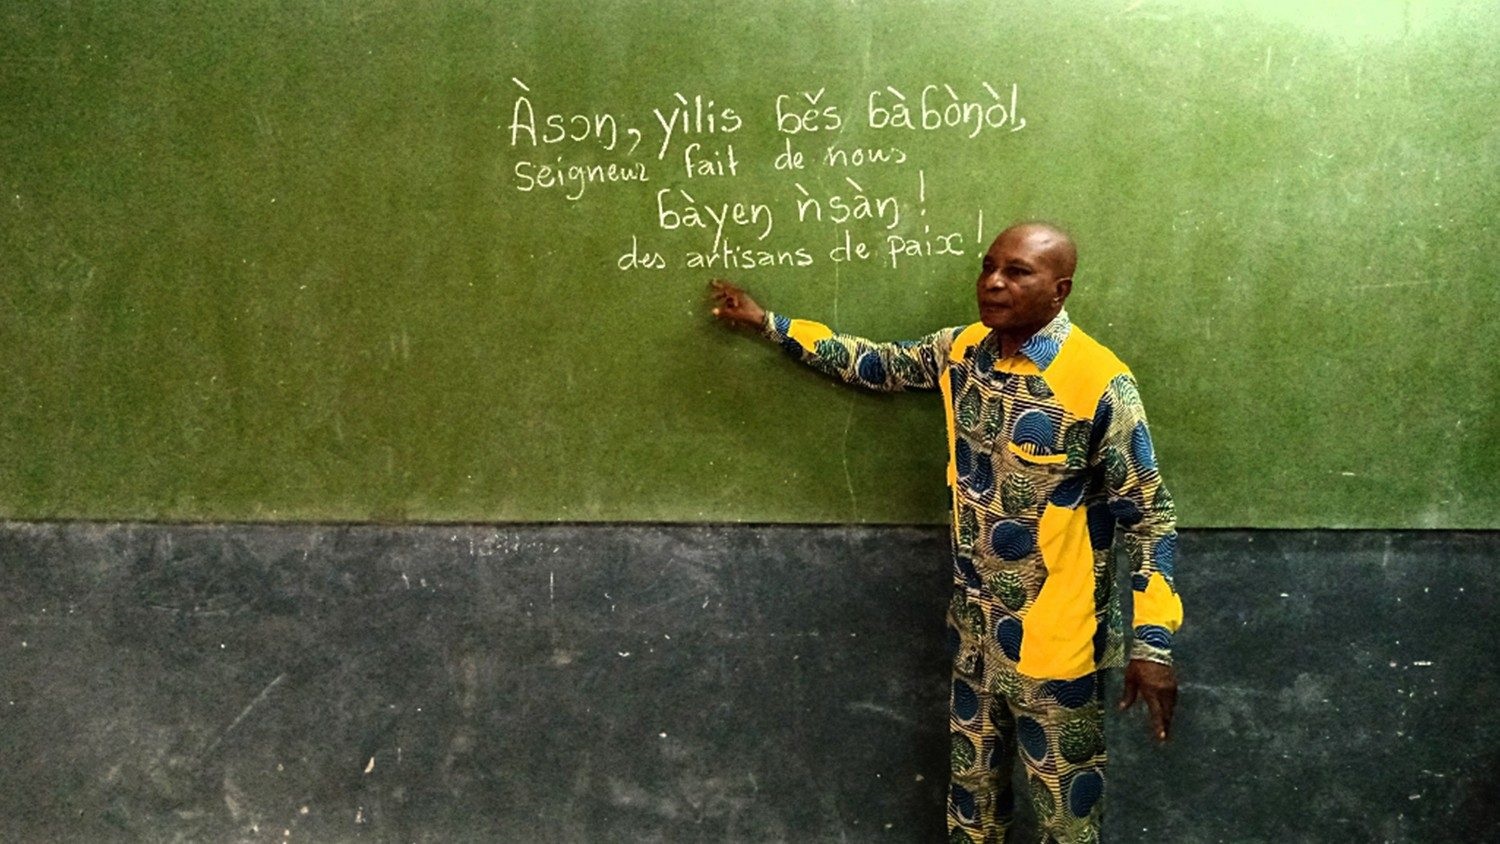 Àsɔŋ, yìlis ɓěs ɓàɓòŋòl,
Seigneur fait de nous
ɓàyeŋ ǹsàŋ !
des artisans de paix !